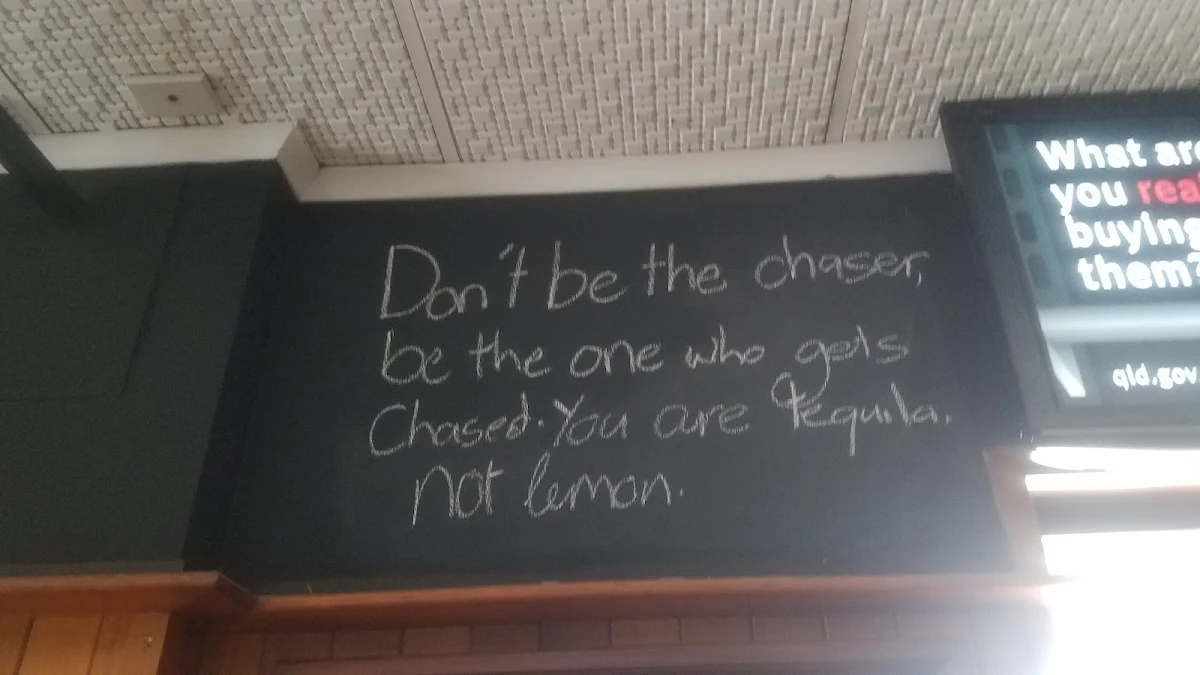 Don't be the chaser,
be the one who gets
Chased. You are Tequila.
not lemon.
What are
you
buying
them?
qld.gov